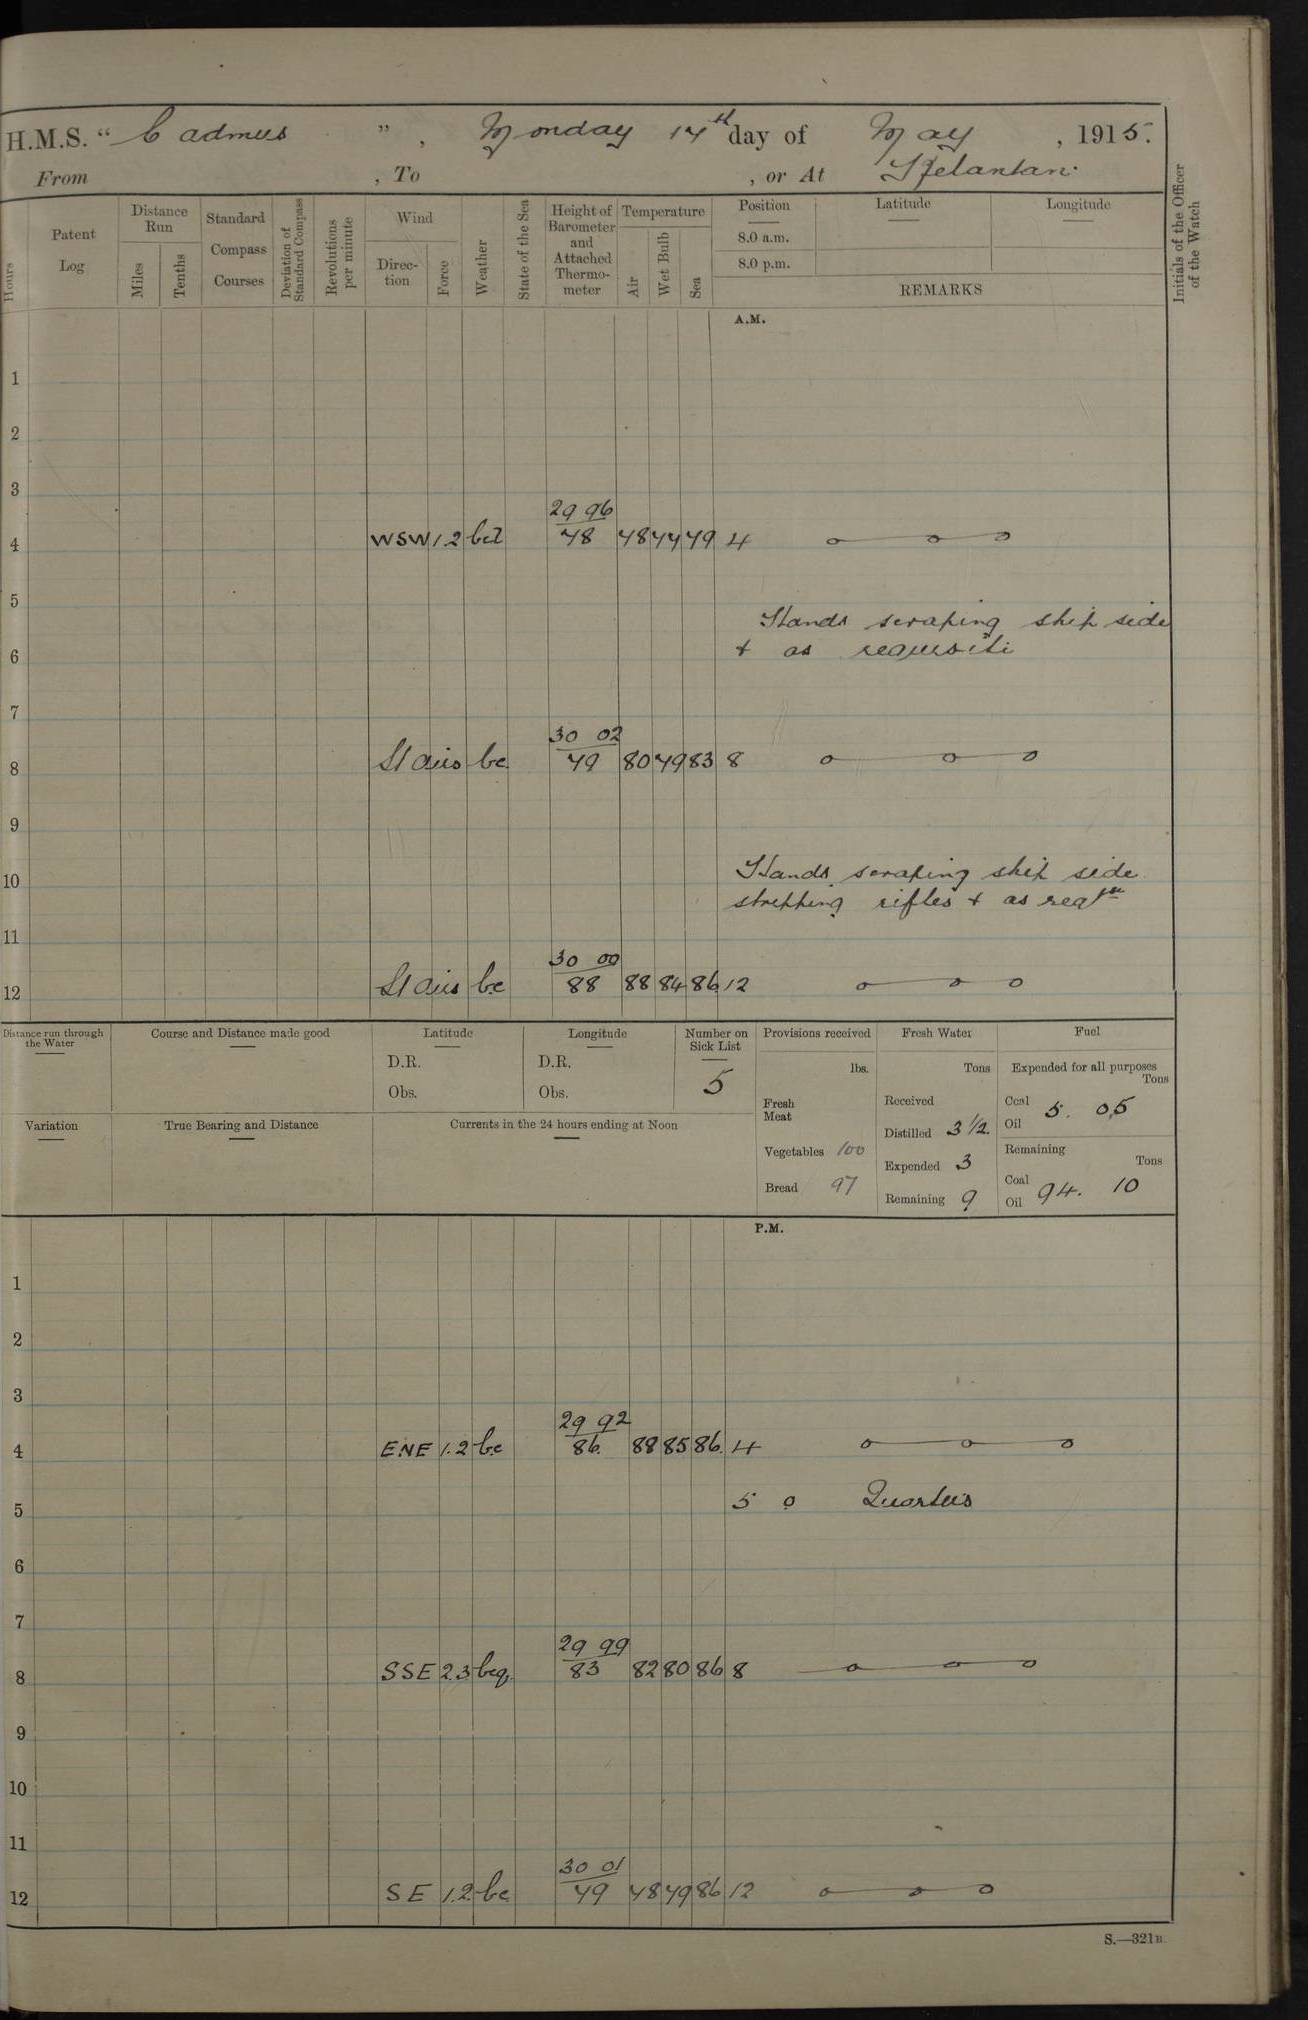 H.M.S. “ Cadmus ” , Monday 17th day of May , 1915.
From , To , or At Kelantan.
Hours
Patent Log
Distance Run
Miles
Tenths
Standard Compass Courses
Deviation of Standard Compass
Revolutions per minute
Wind
Direction
Force
Weather
State of the Sea
Height of Barometer and Attached Thermometer
Temperature
Air
Wet Bulb
Sea
Position
8.0 a.m.
8.0 p.m.
Latitude
Longitude
REMARKS
Initials of the Officer of the Watch
A.M.
1
2
3
29 96
4 WSW 1.2 78 78 77 79 4
5
Hands scraping ship side
6 + as requisite
7
30 02
8 St airs bc 79 80 79 83 8
9
10 Hands scraping ship side
stripping rifles + as reqte
11
30 00
12 St airs bc 88 88 84 86 12
Distance run through the Water
Course and Distance made good
Latitude
D.R.
Obs.
Longitude
D.R.
Obs.
Number on Sick List
5
Provisions received
lbs.
Fresh Meat
Vegetables 100
Bread 97
Fresh Water
Tons
Received
Distilled 3 1/2.
Expended 3
Remaining 9
Fuel
Expended for all purposes
Tons
Coal 5. 05
Oil
Remaining
Tons
Coal 94. 10
Oil
Variation
True Bearing and Distance
Currents in the 24 hours ending at Noon
P.M.
1
2
3
29 92
4 ENE 1.2 bc 86. 88 85 86. 4
5 5 0 Quarters
6
7
29 99
8 SSE 2.3 bcq. 83 82 80 86 8
9
10
11
30 01
12 SE 1.2 bc 79 78 79 86 12
S.—321B.